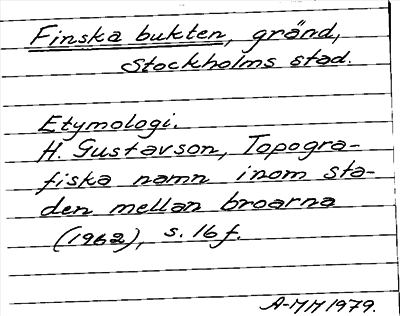 Finska bukten, gränd,
Stockholms stad.
Etymologi.
H. Gustavson, Topogra-
fiska namn inom sta-
den mellan broarna
(1962), s. 16 f.
A-MM 1979.